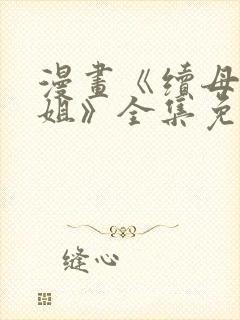 漫畫《續母
姐》全集免
缝心